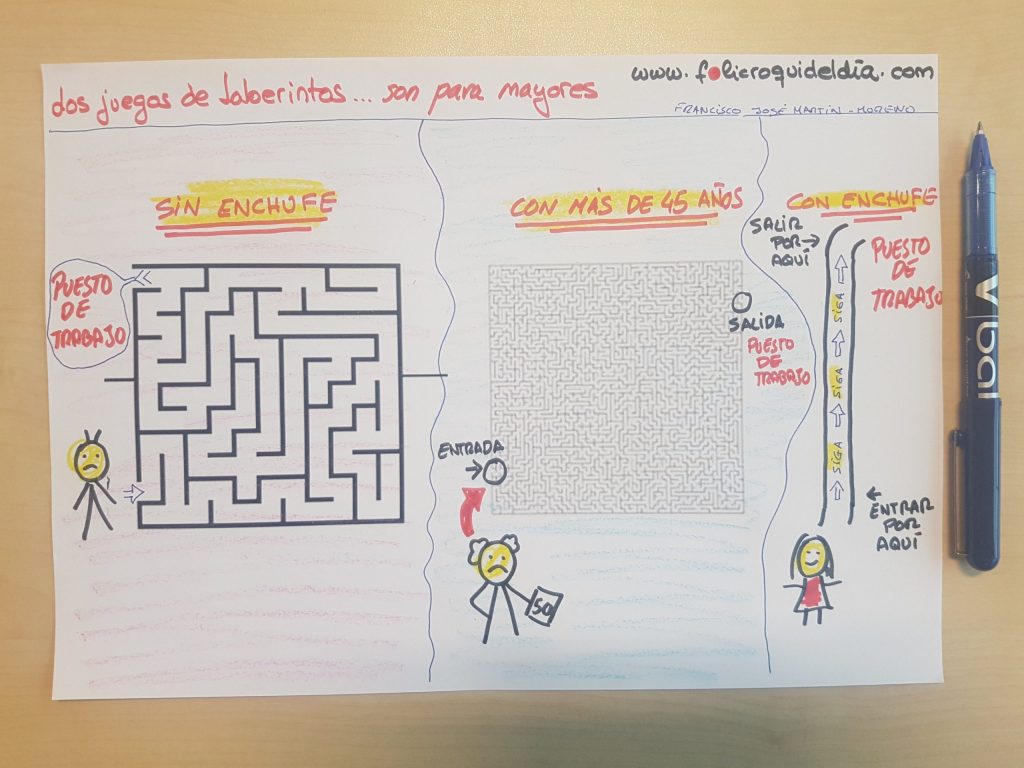 dos juegos de laberintos... son para mayores
www.folicroquideldía.com
FRANCISCO JOSÉ MARTÍN-MORENO
SIN ENCHUFE
PUESTO
DE
TRABAJO
CON MÁS DE 45 AÑOS
SALIDA
PUESTO
DE
TRABAJO
ENTRADA
50
CON ENCHUFE
SALIR
POR
AQUÍ
PUESTO
DE
TRABAJO
SIGA
SIGA
SIGA
ENTRAR
POR
AQUÍ
V bal